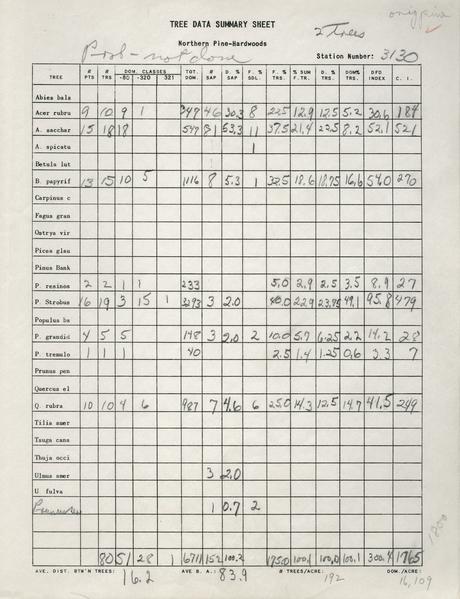 only pine
TREE DATA SUMMARY SHEET
2 Trees
Northern Pine-Hardwoods
Prob - not done
Station Number: 3130
TREE # PTS # TRS DOM. CLASSES -80 -320 321 TOT. DOM. # SAP D. % SAP F. % SDL. F. % TRS. % SUM F.TR. D. % TRS. DOM% TRS. DFD INDEX C. I.
Abies bals
Acer rubru 9 10 9 1 349 46 30.3 8 22.5 12.9 12.5 5.2 30.6 184
A. sacchar 15 18 18 547 81 53.3 11 37.5 21.4 22.5 8.2 52.1 521
A. spicatu 1
Betula lut
B. papyrif 13 15 10 5 1116 8 5.3 1 32.5 18.6 18.75 16.6 54.0 270
Carpinus c
Fagus gran
Ostrya vir
Picea glau
Pinus Bank
P. resinos 2 2 1 1 233 5.0 2.9 2.5 3.5 8.9 27
P. Strobus 16 19 3 15 1 3293 3 2.0 40.0 22.9 23.75 49.1 95.8 479
Populus ba
P. grandid 4 5 5 148 3 2.0 2 10.0 5.7 6.25 2.2 14.2 28
P. tremulo 1 1 1 40 2.5 1.4 1.25 0.6 3.3 7
Prunus pen
Quercus el
Q. rubra 10 10 4 6 987 7 4.6 6 25.0 14.3 12.5 14.7 41.5 249
Tilia amer
Tsuga cana
Thuja occi
Ulmus amer 3 2.0
U fulva
1 0.7 2
80 51 28 1 6711 152 100.2 175.0 100.1 100.0 100.1 300.4 1765
AVE. DIST. BTW'N TREES: 16.2 AVE B. A.: 83.9 # TREES/ACRE: 192 DOM./ACRE: 16,109